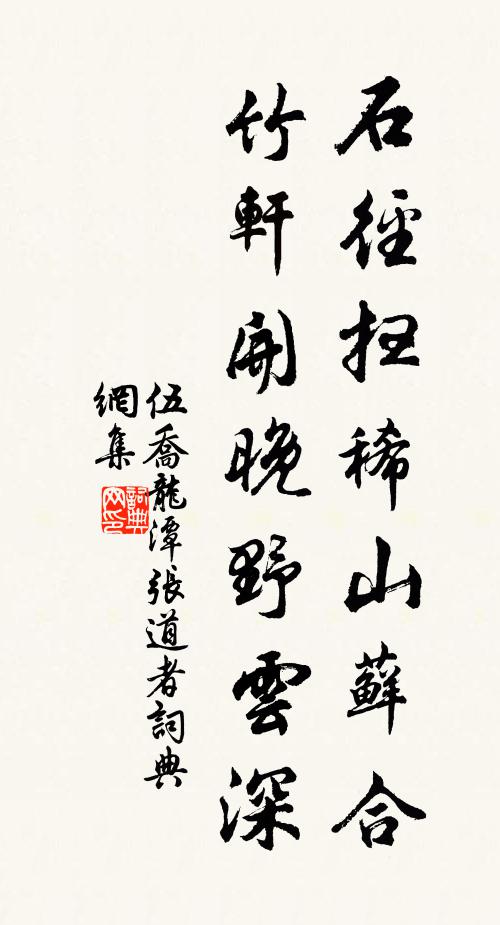 石徑扫稀山蘚合
竹軒開晚野雲深
伍喬龍潭張道者詞典
網集
詞典
网印